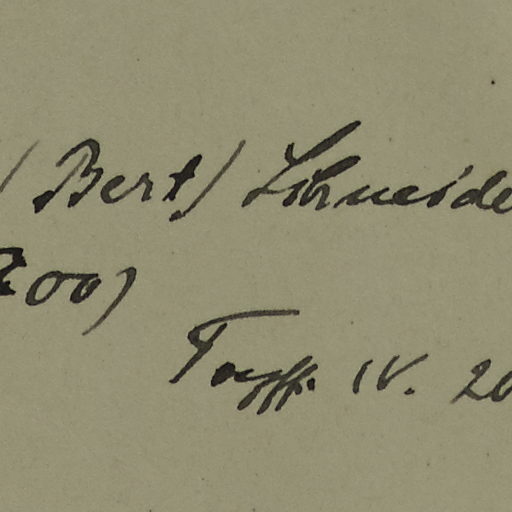 (Bert) Schneide
200)
Taff. IV. 20